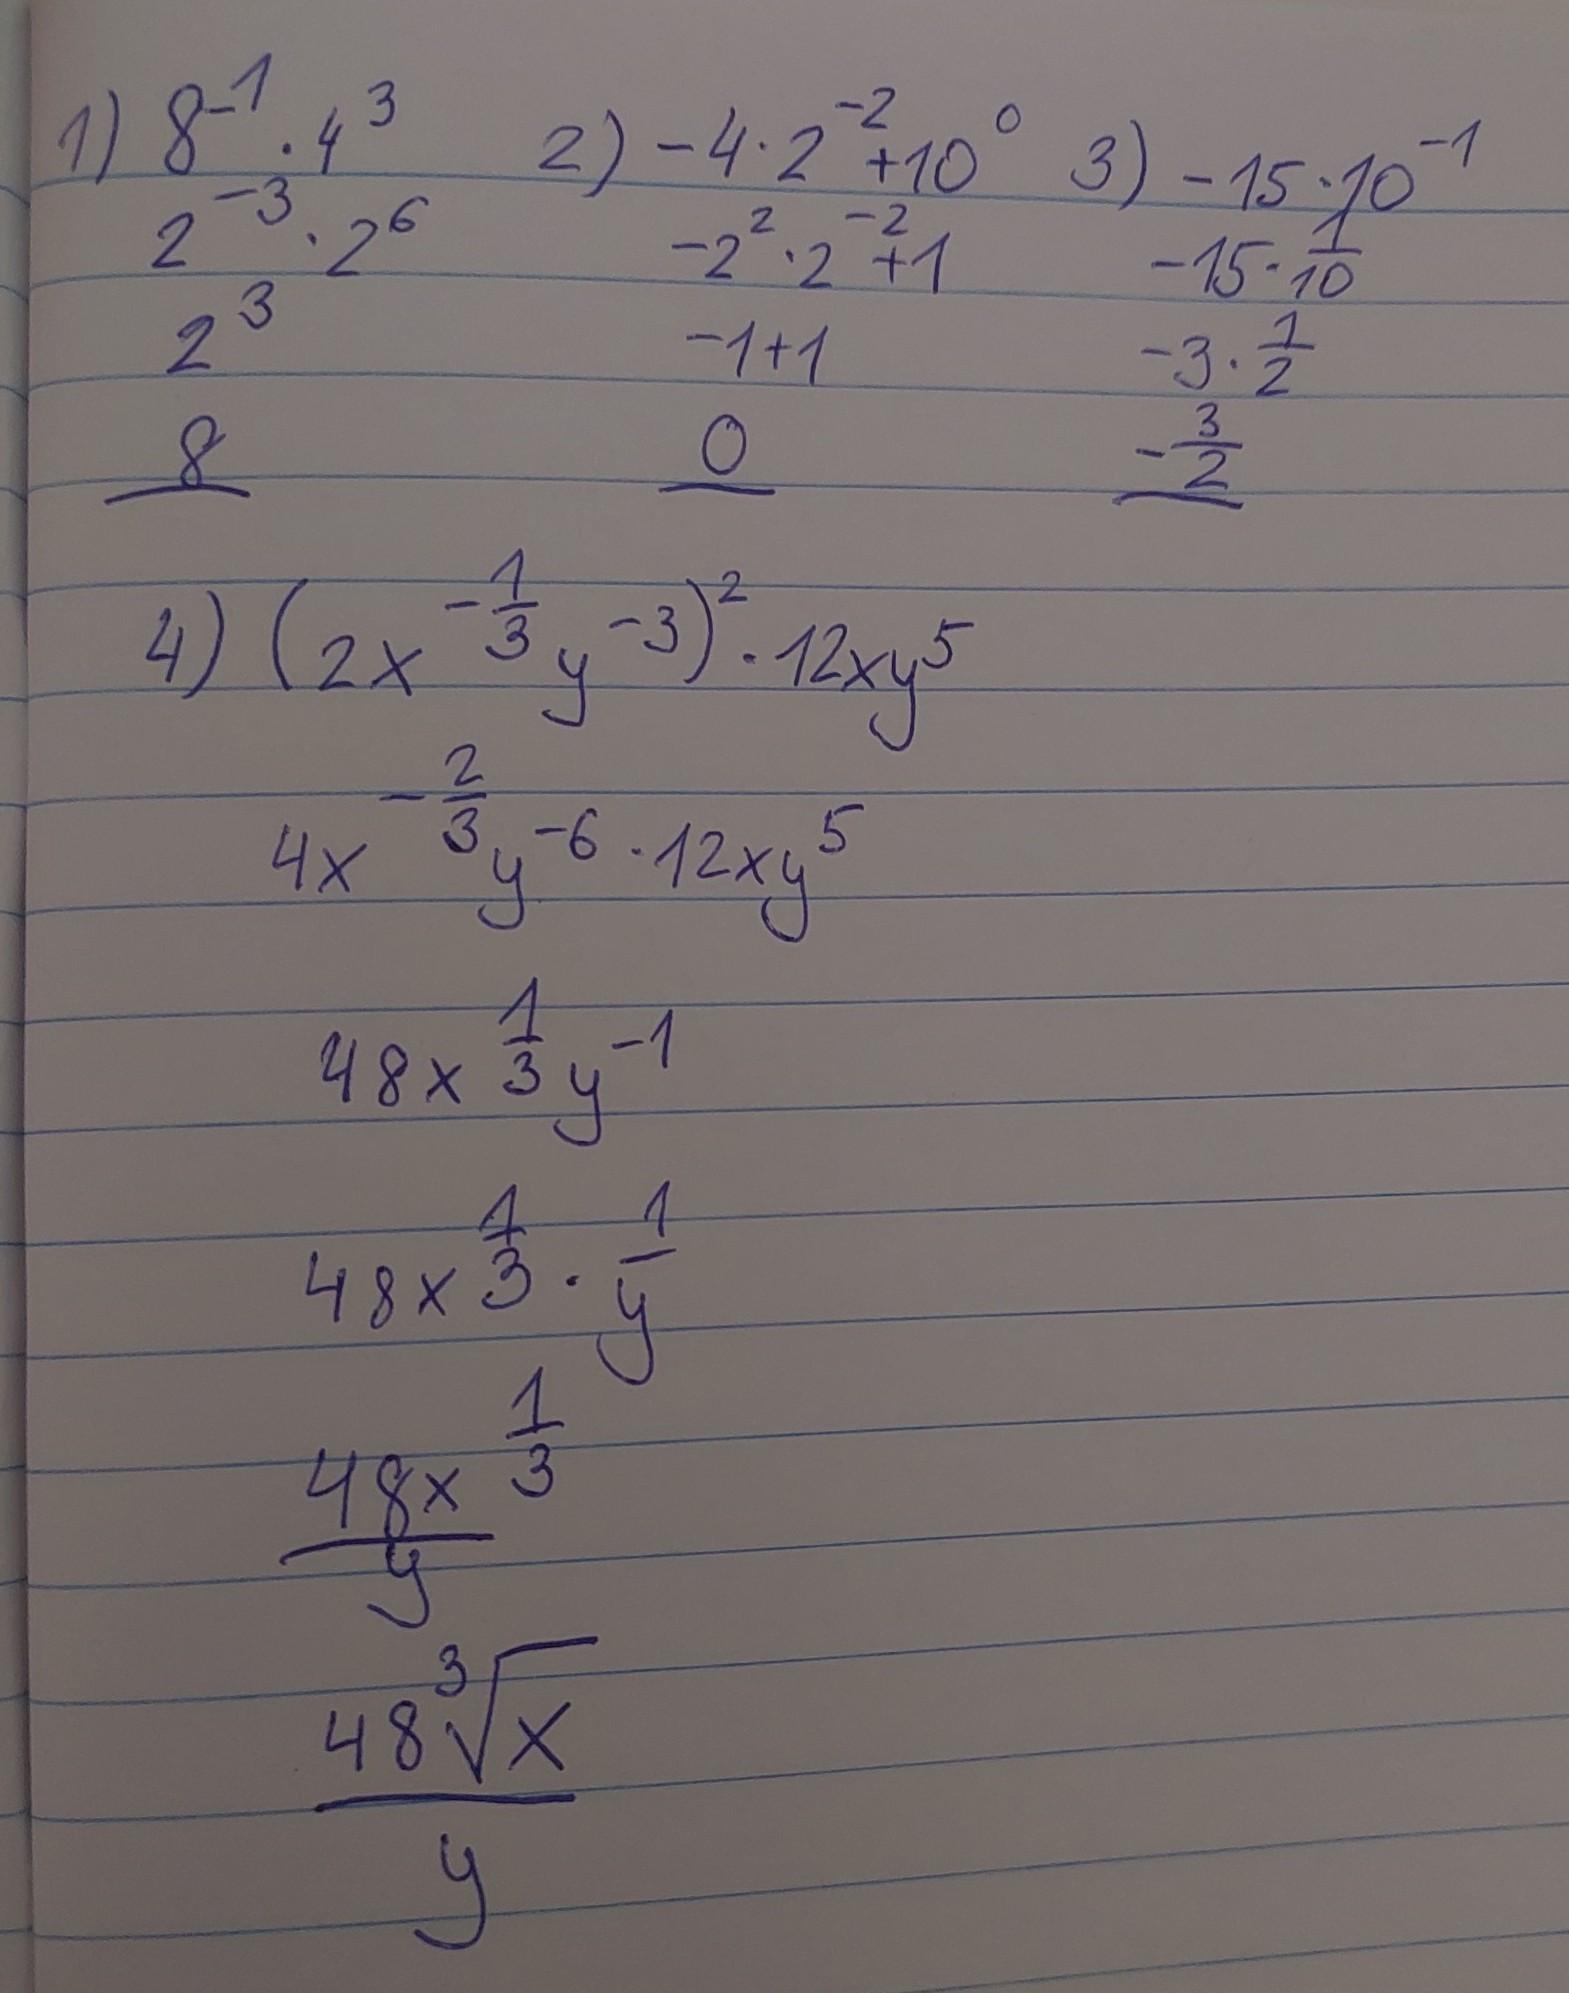 1) 8^{-1} · 4^3
2^{-3} · 2^6
2^3
8
2) -4 · 2^{-2} + 10^0
-2^2 · 2^{-2} + 1
-1+1
0
3) -15 · 10^{-1}
-15 · \frac{1}{10}
-3 · \frac{1}{2}
-\frac{3}{2}
4) (2x^{-\frac{1}{3}} y^{-3})^2 · 12xy^5
4x^{-\frac{2}{3}} y^{-6} · 12xy^5
48x^{\frac{1}{3}} y^{-1}
48x^{\frac{1}{3}} · \frac{1}{y}
\frac{48x^{\frac{1}{3}}}{y}
\frac{48\sqrt[3]{x}}{y}